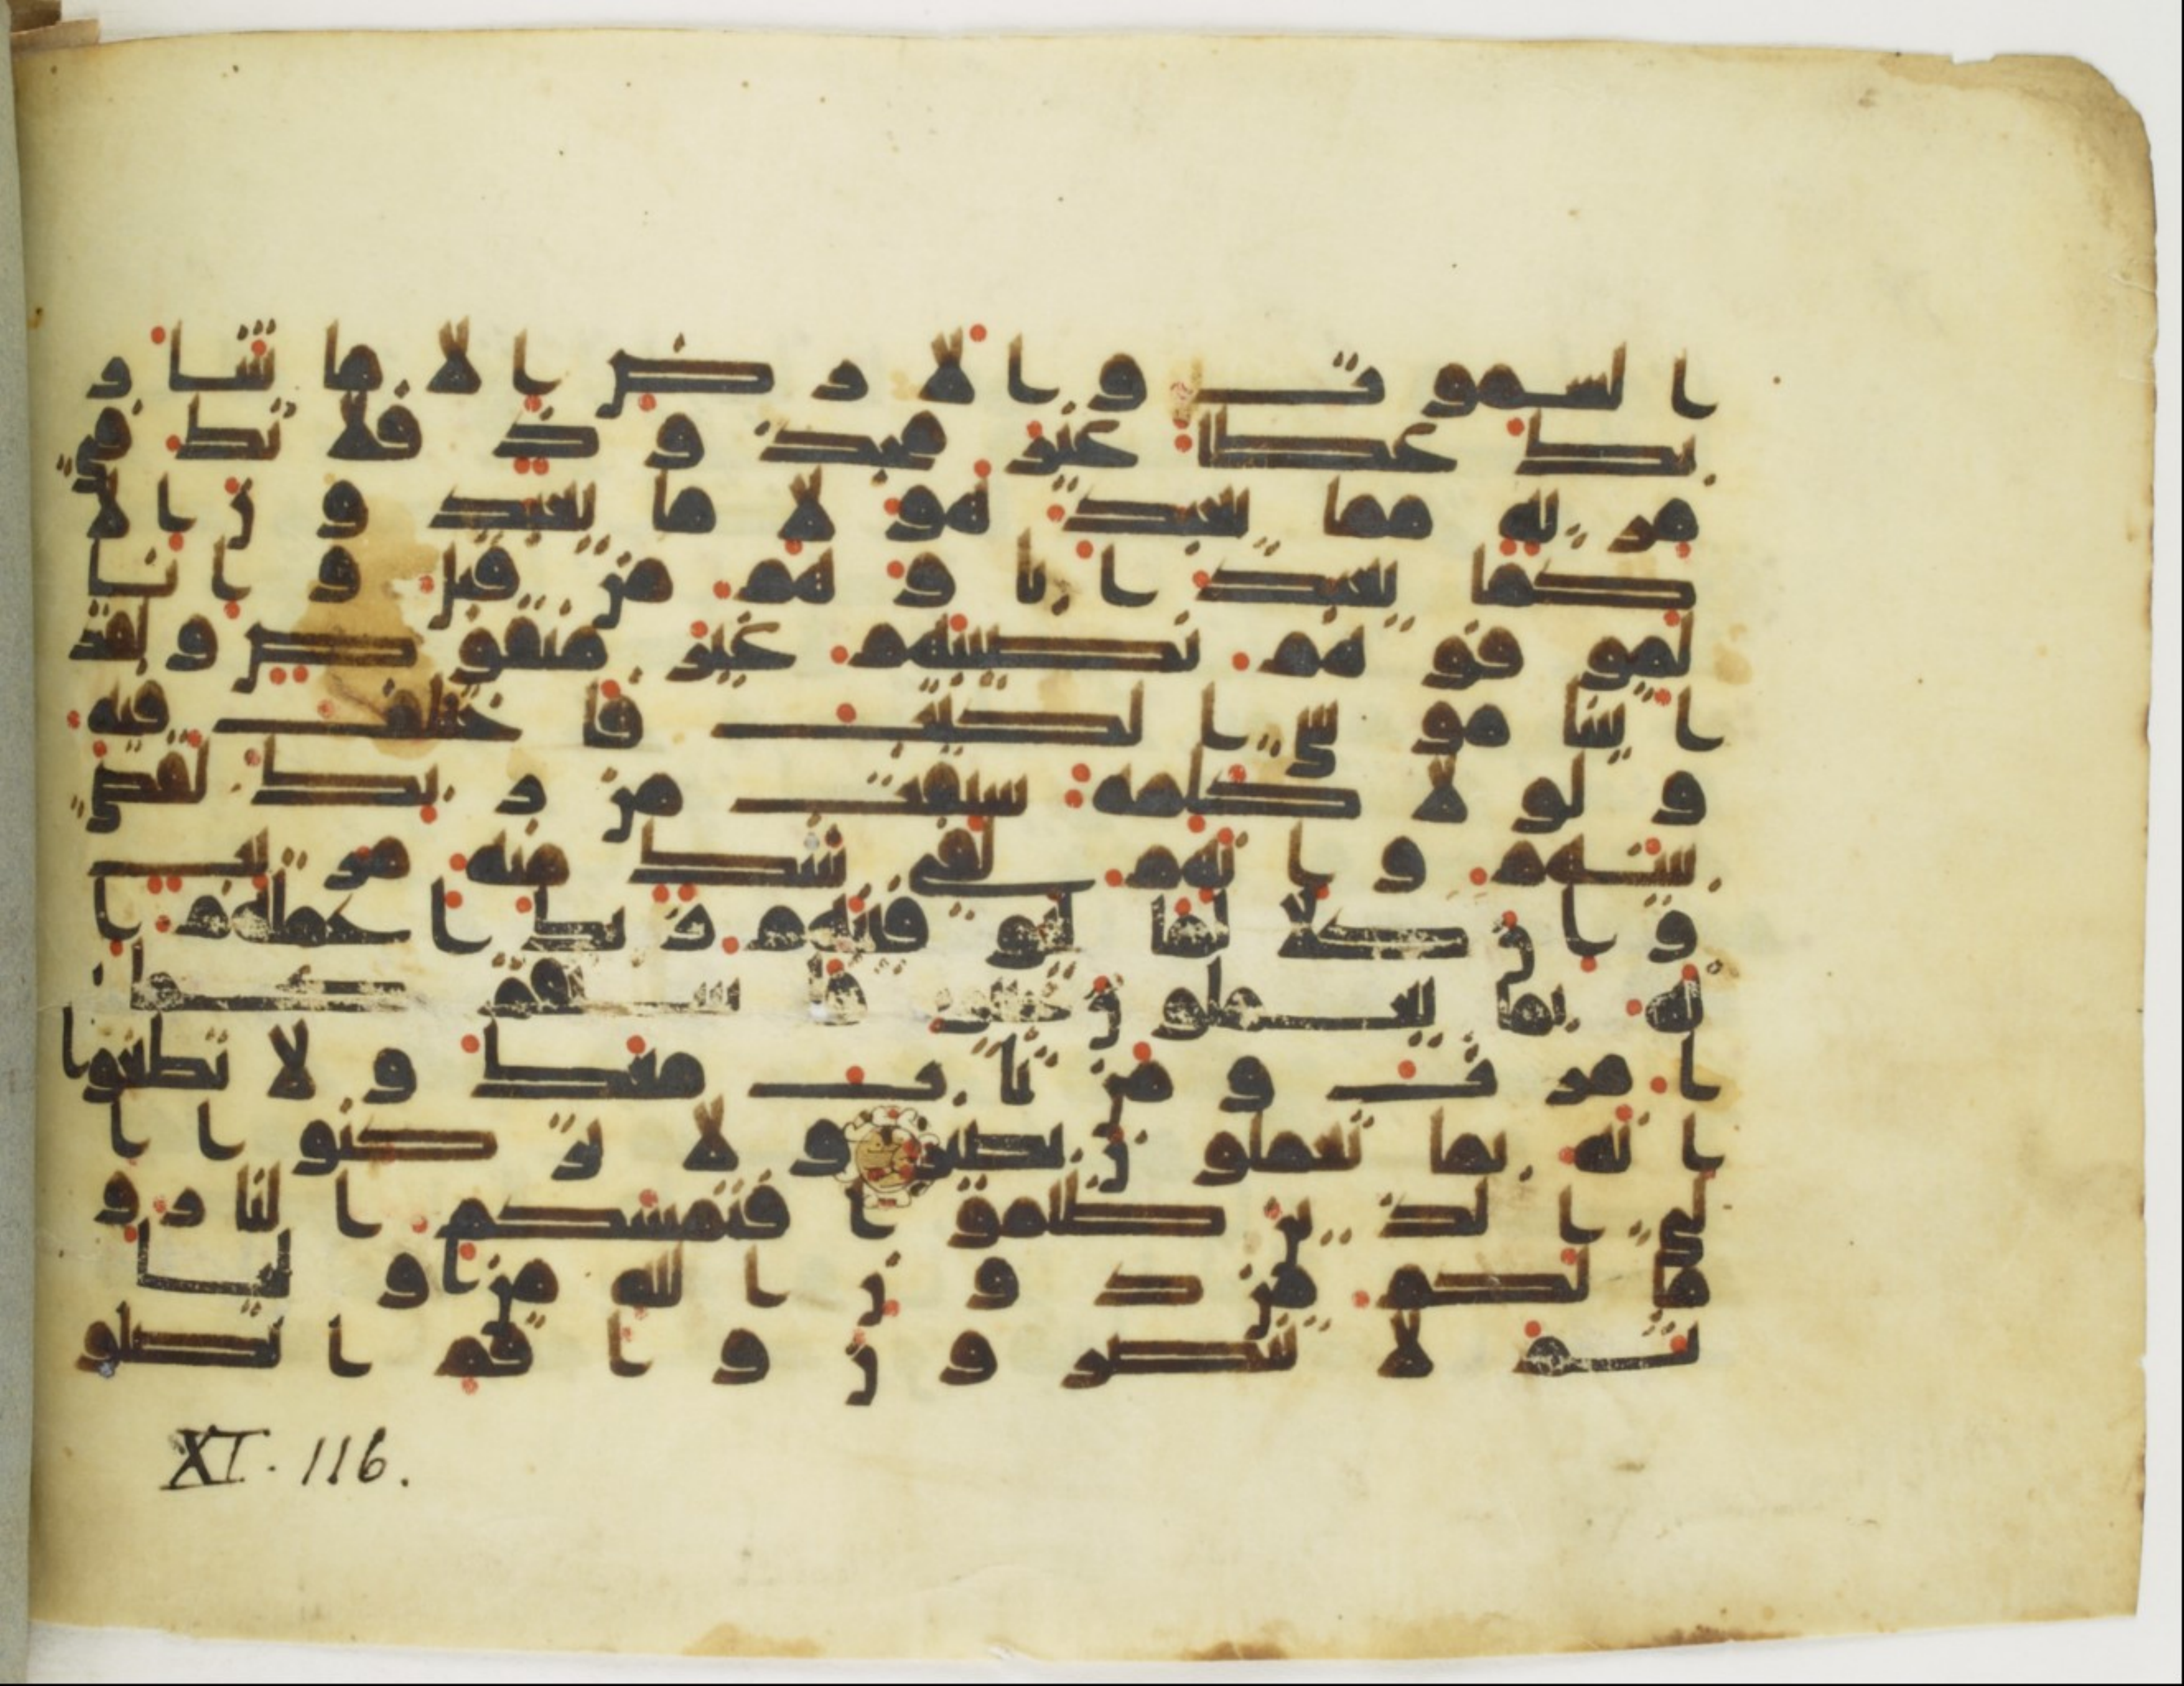 السموت والارض الا ما شا ر
بك عطا غير مجذوذ فلا تك في
مرية مما يعبد هولا ما يعبدون الا
كما يعبد اباوهم من قبل وانا
لموفوهم نصيبهم غير منقوص ولقد
اتينا موسى الكتب فاختلف فيه
ولولا كلمة سبقت من ربك لقضي
بينهم وانهم لفي شك منه مريب
وان كلا لما ليوفينهم ربك اعملهم ا
نه بما يعملون خبير فاستقم كما
امرت ومن تاب معك ولا تطغوا
انه بما تعملون بصير ولا تركنوا ا
لى الذين ظلموا فتمسكم النار و
ما لكم من دون الله من اوليا
ثم لا تنصرون واقم الصلو
XI. 116.